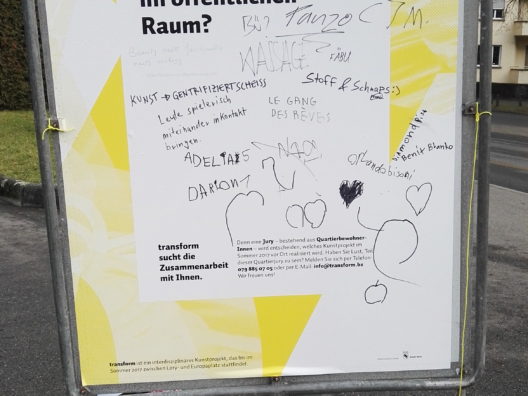 im öffentlichen
Raum?
CTM.
WASAGE
FÄBU
Stoff & Schnaps:)
KUNST → GENTRIFIZIERTSCHEISS
Leute spielerisch
miteinander in Kontakt
bringen.
LE GANG
DES RÊVES
ADELTAS
DARION1
Diamond
Benit Blanko
transform
sucht die
Zusammenarbeit
mit Ihnen.
Denn eine Jury – bestehend aus Quartierbewohner-
Innen – wird entscheiden, welches Kunstprojekt im
Sommer 2017 vor Ort realisiert wird. Haben Sie Lust, Teil
dieser Quartierjury zu sein? Melden Sie sich per Telefon
079 885 07 05 oder per E-Mail info@transform.be
Wir freuen uns!
transform ist ein interdisziplinäres Kunstprojekt, das bis im
Sommer 2017 zwischen Lory- und Europaplatz stattfindet.